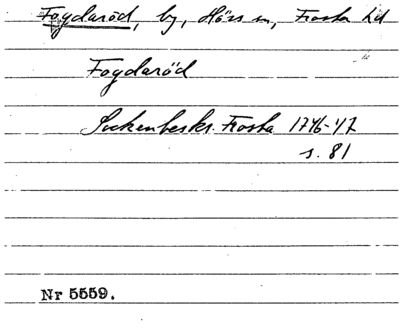 Fogdaröd, by, Hörs sn, Frosta hd
Fogdaröd
Sockenbeskr. Frosta 1746-47
s. 81
Nr 5559.